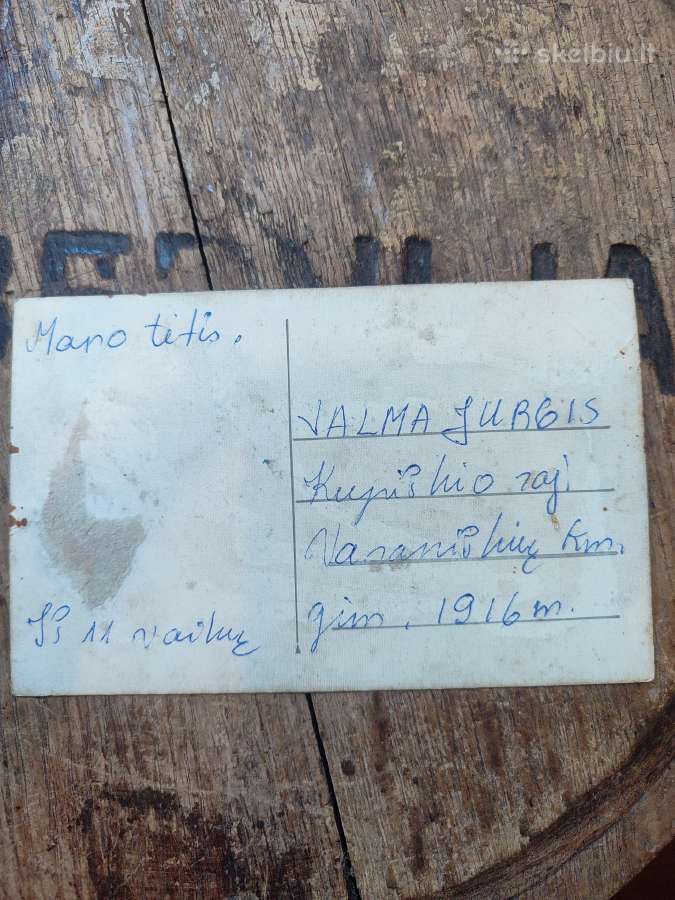 skelbiu.lt
Mano tėtis.
Iš 11 vaikų
VALMA JURGIS
Kupiškio raj.
Varaniškių Km.
gim. 1916 m.